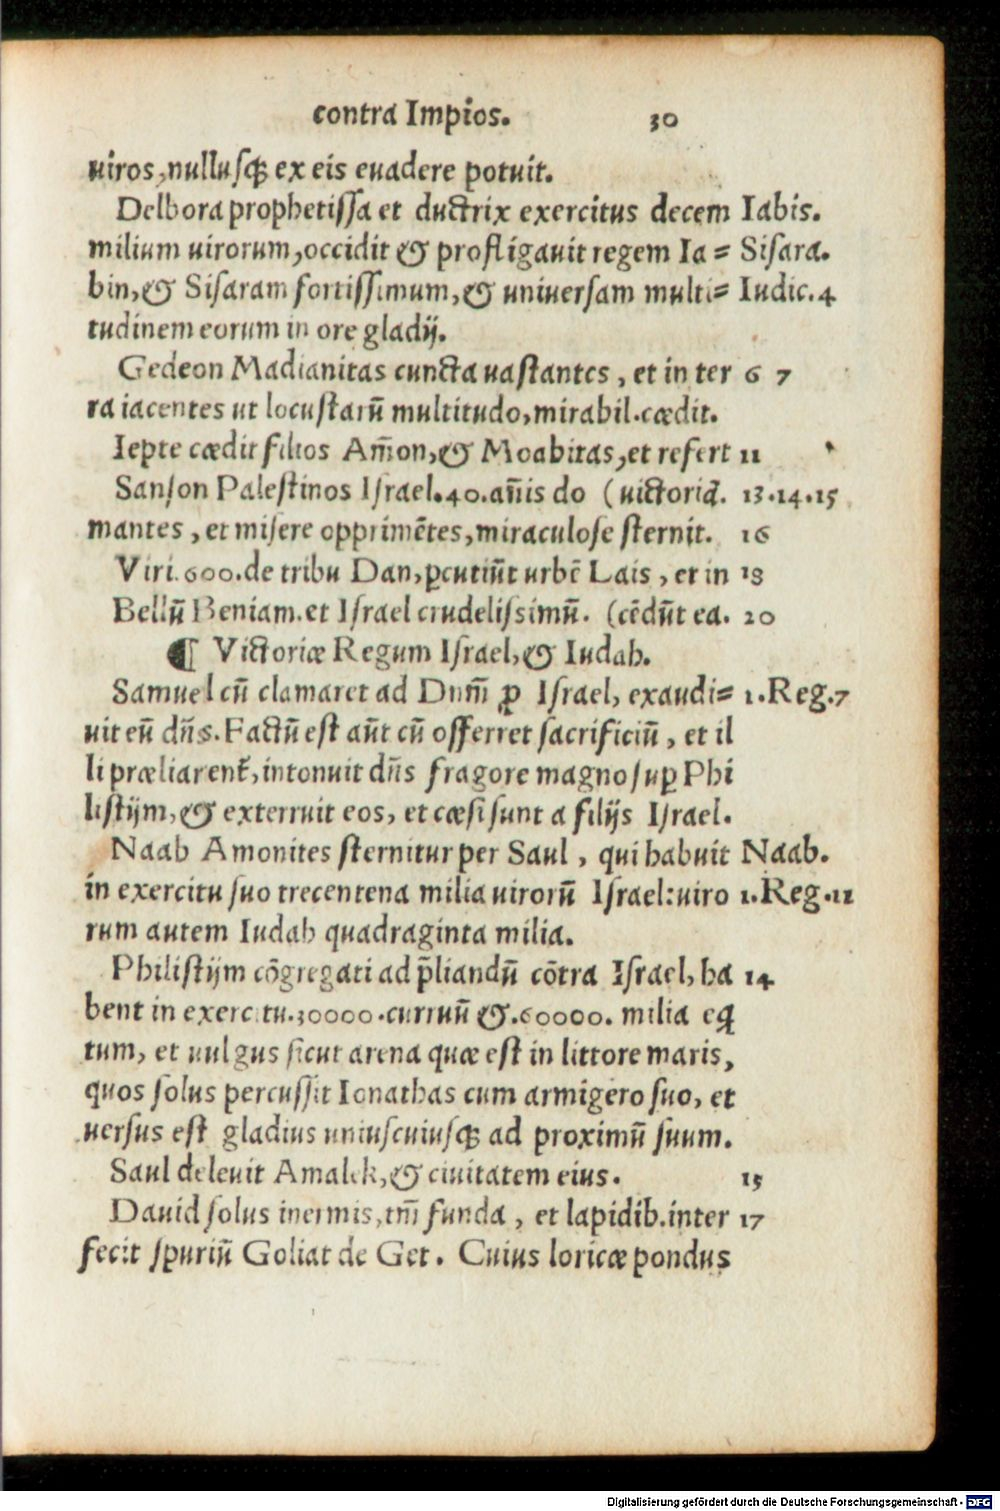 contra Impios. 30
uiros, nullusq́ꝫ ex eis euadere potuit.
Delbora prophetissa et ductrix exercitus decem Iabis.
milium uirorum, occidit & profligauit regem Ia= Sisara.
bin, & Sisaram fortissimum, & uniuersam multi= Iudic.4
tudinem eorum in ore gladij.
Gedeon Madianitas cuncta uastantes, et in ter 6 7
ra iacentes ut locustarū multitudo, mirabil. cædit.
Iepte cædit filios Am̄on, & Moabitas, et refert 11
Sanson Palestinos Israel.40.an̄is do (uictoriā. 13.14.15
mantes, et misere opprimētes, miraculose sternit. 16
Viri.600.de tribu Dan, ꝑcutiūt urbē Lais, et in 18
Bellū Beniam. et Israel crudelissimū. (cēdūt ea. 20
¶ Victoriæ Regum Israel, & Iudah.
Samuel cū clamaret ad Dnm̄ ꝓ Israel, exaudi= 1.Reg.7
uit eū dn̄s. Factū est aūt cū offerret sacrificiū, et il
li præliarent̄, intonuit dn̄s fragore magno suꝑ Phi
listijm, & exterruit eos, et cæsi sunt a filijs Israel.
Naab Amonites sternitur per Saul, qui habuit Naab.
in exercitu suo trecentena milia uirorū Israel: uiro 1.Reg.11
rum autem Iudah quadraginta milia.
Philistijm cōgregati ad p̄liandū cōtra Israel, ha 14
bent in exercitu.30000.curruū &.60000. milia eq̄
tum, et uulgus sicut arena quæ est in littore maris,
quos solus percussit Ionathas cum armigero suo, et
uersus est gladius uniuscuiusq́ꝫ ad proximū suum.
Saul deleuit Amalek, & ciuitatem eius. 15
Dauid solus inermis, tm̄ funda, et lapidib. inter 17
fecit spuriū Goliat de Get. Cuius loricæ pondus
Digitalisierung gefördert durch die Deutsche Forschungsgemeinschaft - DFG